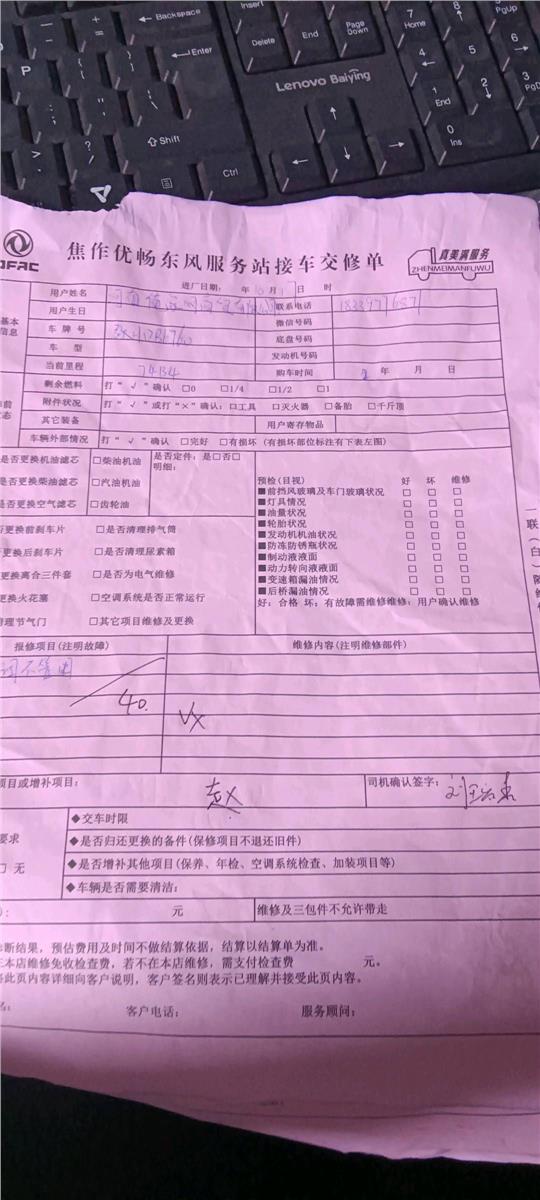 Backspace
Insert
Enter
Delete
End
Page Down
7 Home
8
9 PgUp
P
Lenovo Baiying
4
5
6
1 End
2
3
Shift
Ctrl
0 Ins
DFAC
焦作优畅东风服务站接车交修单
真美满服务
ZHENMEIMANFUWU
进厂日期： 年 月 日 时
基本信息
用户姓名
联系电话
用户生日
微信号码
车牌号
底盘号码
车型
发动机号码
当前里程 74134
购车时间 年 月 日
剩余燃料 打“√”确认 □0 □1/4 □1/2 □1
附件状况 打“√”或打“×”确认：□工具 □灭火器 □备胎 □千斤顶
其它装备
用户寄存物品
车辆外部情况 打“√”确认 □完好 □有损坏（有损坏部位标注有下表左图）
是否更换机油滤芯 □柴油机油 是否定件：是□否□
明细：
是否更换柴油滤芯 □汽油机油
是否更换空气滤芯 □齿轮油
预检(目视) 好 坏 维修
■前挡风玻璃及车门玻璃状况 □ □ □
■灯具情况 □ □ □
■油量状况 □ □ □
■轮胎状况 □ □ □
■发动机机油状况 □ □ □
■防冻防锈瓶状况 □ □ □
■制动液液面 □ □ □
■动力转向液液面 □ □ □
■变速箱漏油情况 □ □ □
■后桥漏油情况 □ □ □
好：合格 坏：有故障需维修维修：用户确认维修
更换前刹车片 □是否清理排气筒
更换后刹车片 □是否清理尿素箱
更换离合三件套 □是否为电气维修
更换火花塞 □空调系统是否正常运行
清理节气门 □其它项目维修及更换
一联（白）
报修项目(注明故障)
维修内容(注明维修部件)
不管用
40.
VX
项目或增补项目：
赵
司机确认签字：
◆交车时限
要求
◆是否归还更换的备件(保修项目不退还旧件)
□ 无
◆是否增补其他项目(保养、年检、空调系统检查、加装项目等)
◆车辆是否需要清洁：
元
维修及三包件不允许带走
诊断结果，预估费用及时间不做结算依据，结算以结算单为准。
本店维修免收检查费，若不在本店维修，需支付检查费 元。
将此页内容详细向客户说明，客户签名则表示已理解并接受此页内容。
名：
客户电话：
服务顾问：